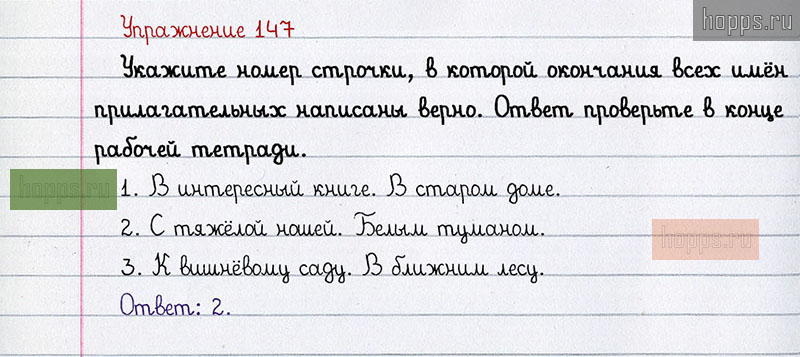 hopps.ru
Упражнение 147
Укажите номер строчки, в которой окончания всех имён
прилагательных написаны верно. Ответ проверьте в конце
рабочей тетради.
hopps.ru
1. В интересный книге. В старом доме.
2. С тяжёлой ношей. Белым туманом.
hopps.ru
3. К вишнёвому саду. В ближним лесу.
Ответ: 2.